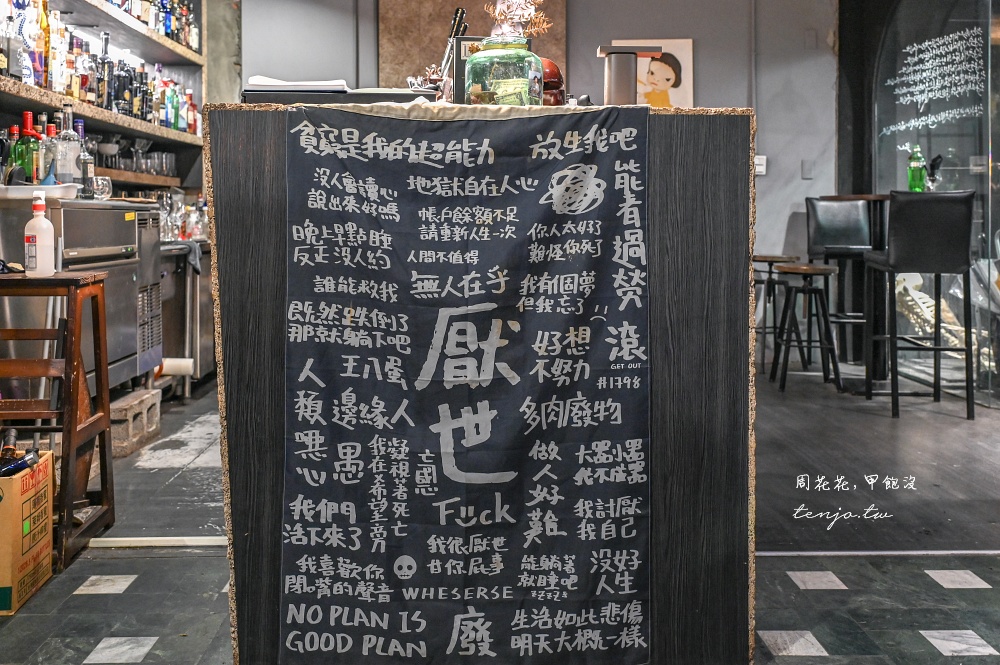 貧窮是我的超能力
放生我吧
沒人會讀心
說出來好嗎
地獄自在人心
能者過勞
帳戶餘額不足
請重新人生一次
你人太好了
難怪你死了
晚上早點睡
反正沒人約
人間不值得
誰能救我
無人在乎
我有個夢
但我忘了
既然跌倒了
那就躺下吧
厭世
好想
不努力
滾
GET OUT
#1798
人類噁心
王八蛋
邊緣人
多肉廢物
愚
我在希望努
凝視著死亡
亡國感
做人好難
大器小器
我不成器
我們
活不來了
Fuck
我討厭
我自己
我很厭世
甘你屁事
能躺著
就睡吧
zzzz
沒好
人生
我喜歡你
閉嘴的聲音
WHESERSE
NO PLAN IS
GOOD PLAN
廢
生活如此悲傷
明天大概一樣
周花花，甲飽沒
tenjo.tw